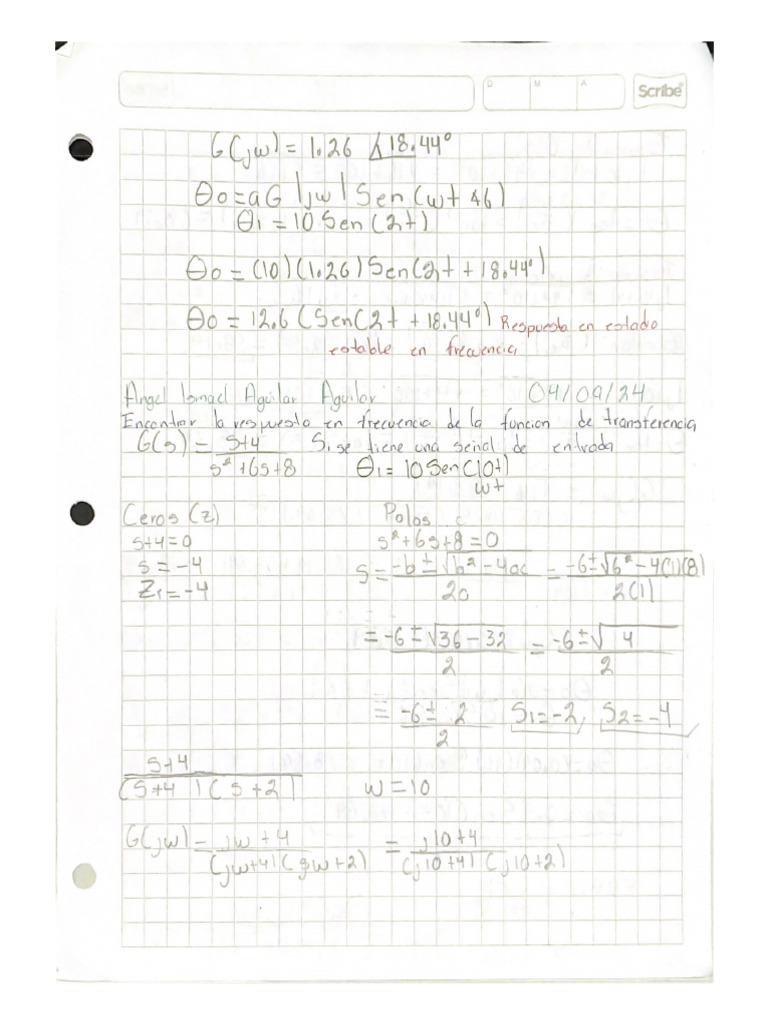 D M A Scribe
G(jw) = 1.26 ∠18.44°
θo = aG |jw| Sen(wt + b)
θ1 = 10 Sen (2t)
θo = (10)(1.26) Sen(2t + 18.44°)
θo = 12.6 (Sen(2t + 18.44°) Respuesta en estado
estable en frecuencia
Angel Ismael Aguilar Aguilar 04/09/24
Encontrar la respuesta en frecuencia de la funcion de transferencia
G(s) = s+4 / s²+6s+8 Si se tiene una señal de entrada
θ1 = 10 Sen(10t)
wt
Ceros (z) Polos
s+4=0 s²+6s+8=0
s = -4 s = -b ± √b² - 4ac / 2a = -6 ± √6² - 4(1)(8) / 2(1)
Z1 = -4
= -6 ± √36 - 32 / 2 = -6 ± √4 / 2
= -6 ± 2 / 2 S1 = -2, S2 = -4
s+4 / (s+4)(s+2) w = 10
G(jw) = jw + 4 / (jw+4)(jw+2) = j10+4 / (j10+4)(j10+2)